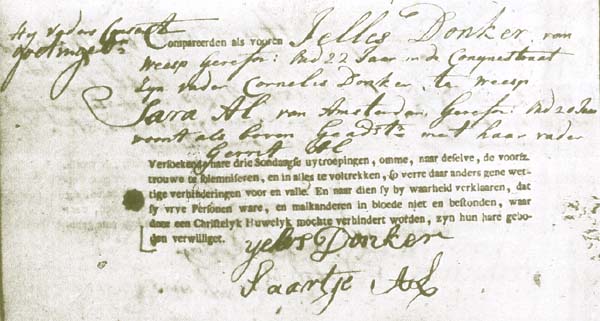 Hy vaders Consent
goetingebr.
Compareerden als vooren Jelles Donker, van
Weesp Gerefor: Oud 22 Jaar in de Congnetstraat
Zyn vader Cornelis Donker, te weesp
Sara Al van Amsterdam, Gerefor: Oud 20 Jaar
woont als boven Geadst: met haar vader
Gerrit Al
Versoekende hare drie Sondaagse uytroepingen, omme, naar deselve, de voorsz.
trouwe te solemniseren, en in alles te voltrekken, so verre daar anders gene wet-
tige verhinderingen voor en valle. En naar dien sy by waarheid verklaaren, dat
sy vrye Personen ware, en malkanderen in bloede niet en bestonden, waar
door een Christelyk Huwelyk mochte verhindert worden, zyn hun hare gebo-
den verwilliget.
yelles Donker
Saartje Al